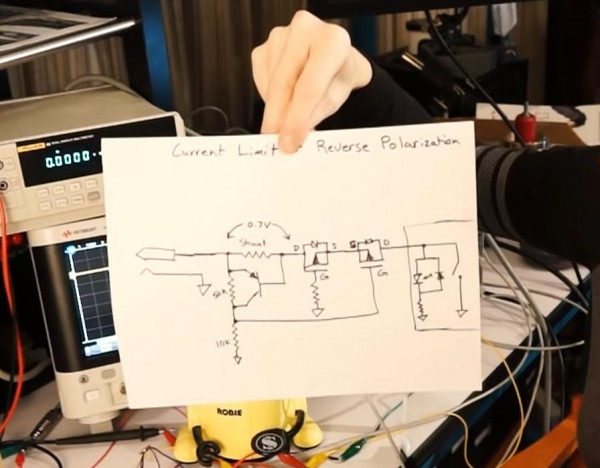 Current Limit Reverse Polarization
0.7V
Shunt
D S S D
G G
50K
10K
0.0000
KEYSIGHT
ROBIE